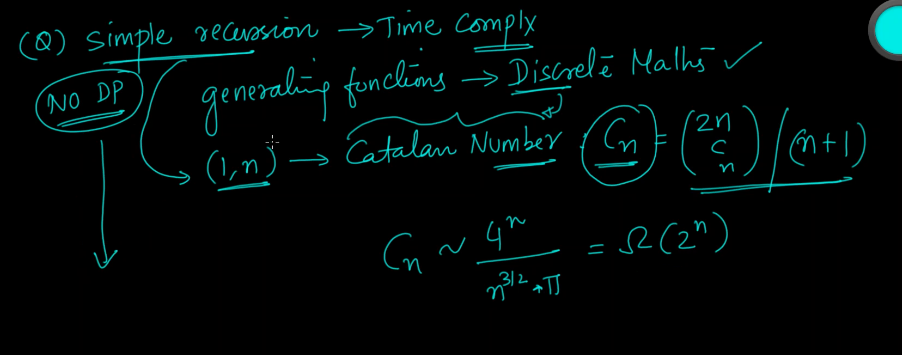 (Q) Simple recursion → Time Complx
NO DP
generating functions → Discrete Maths ✓
(1, n) → Catalan Number C_n = (2n C n) / (n+1)
C_n ~ 4^n / n^{3/2} * π = Ω(2^n)